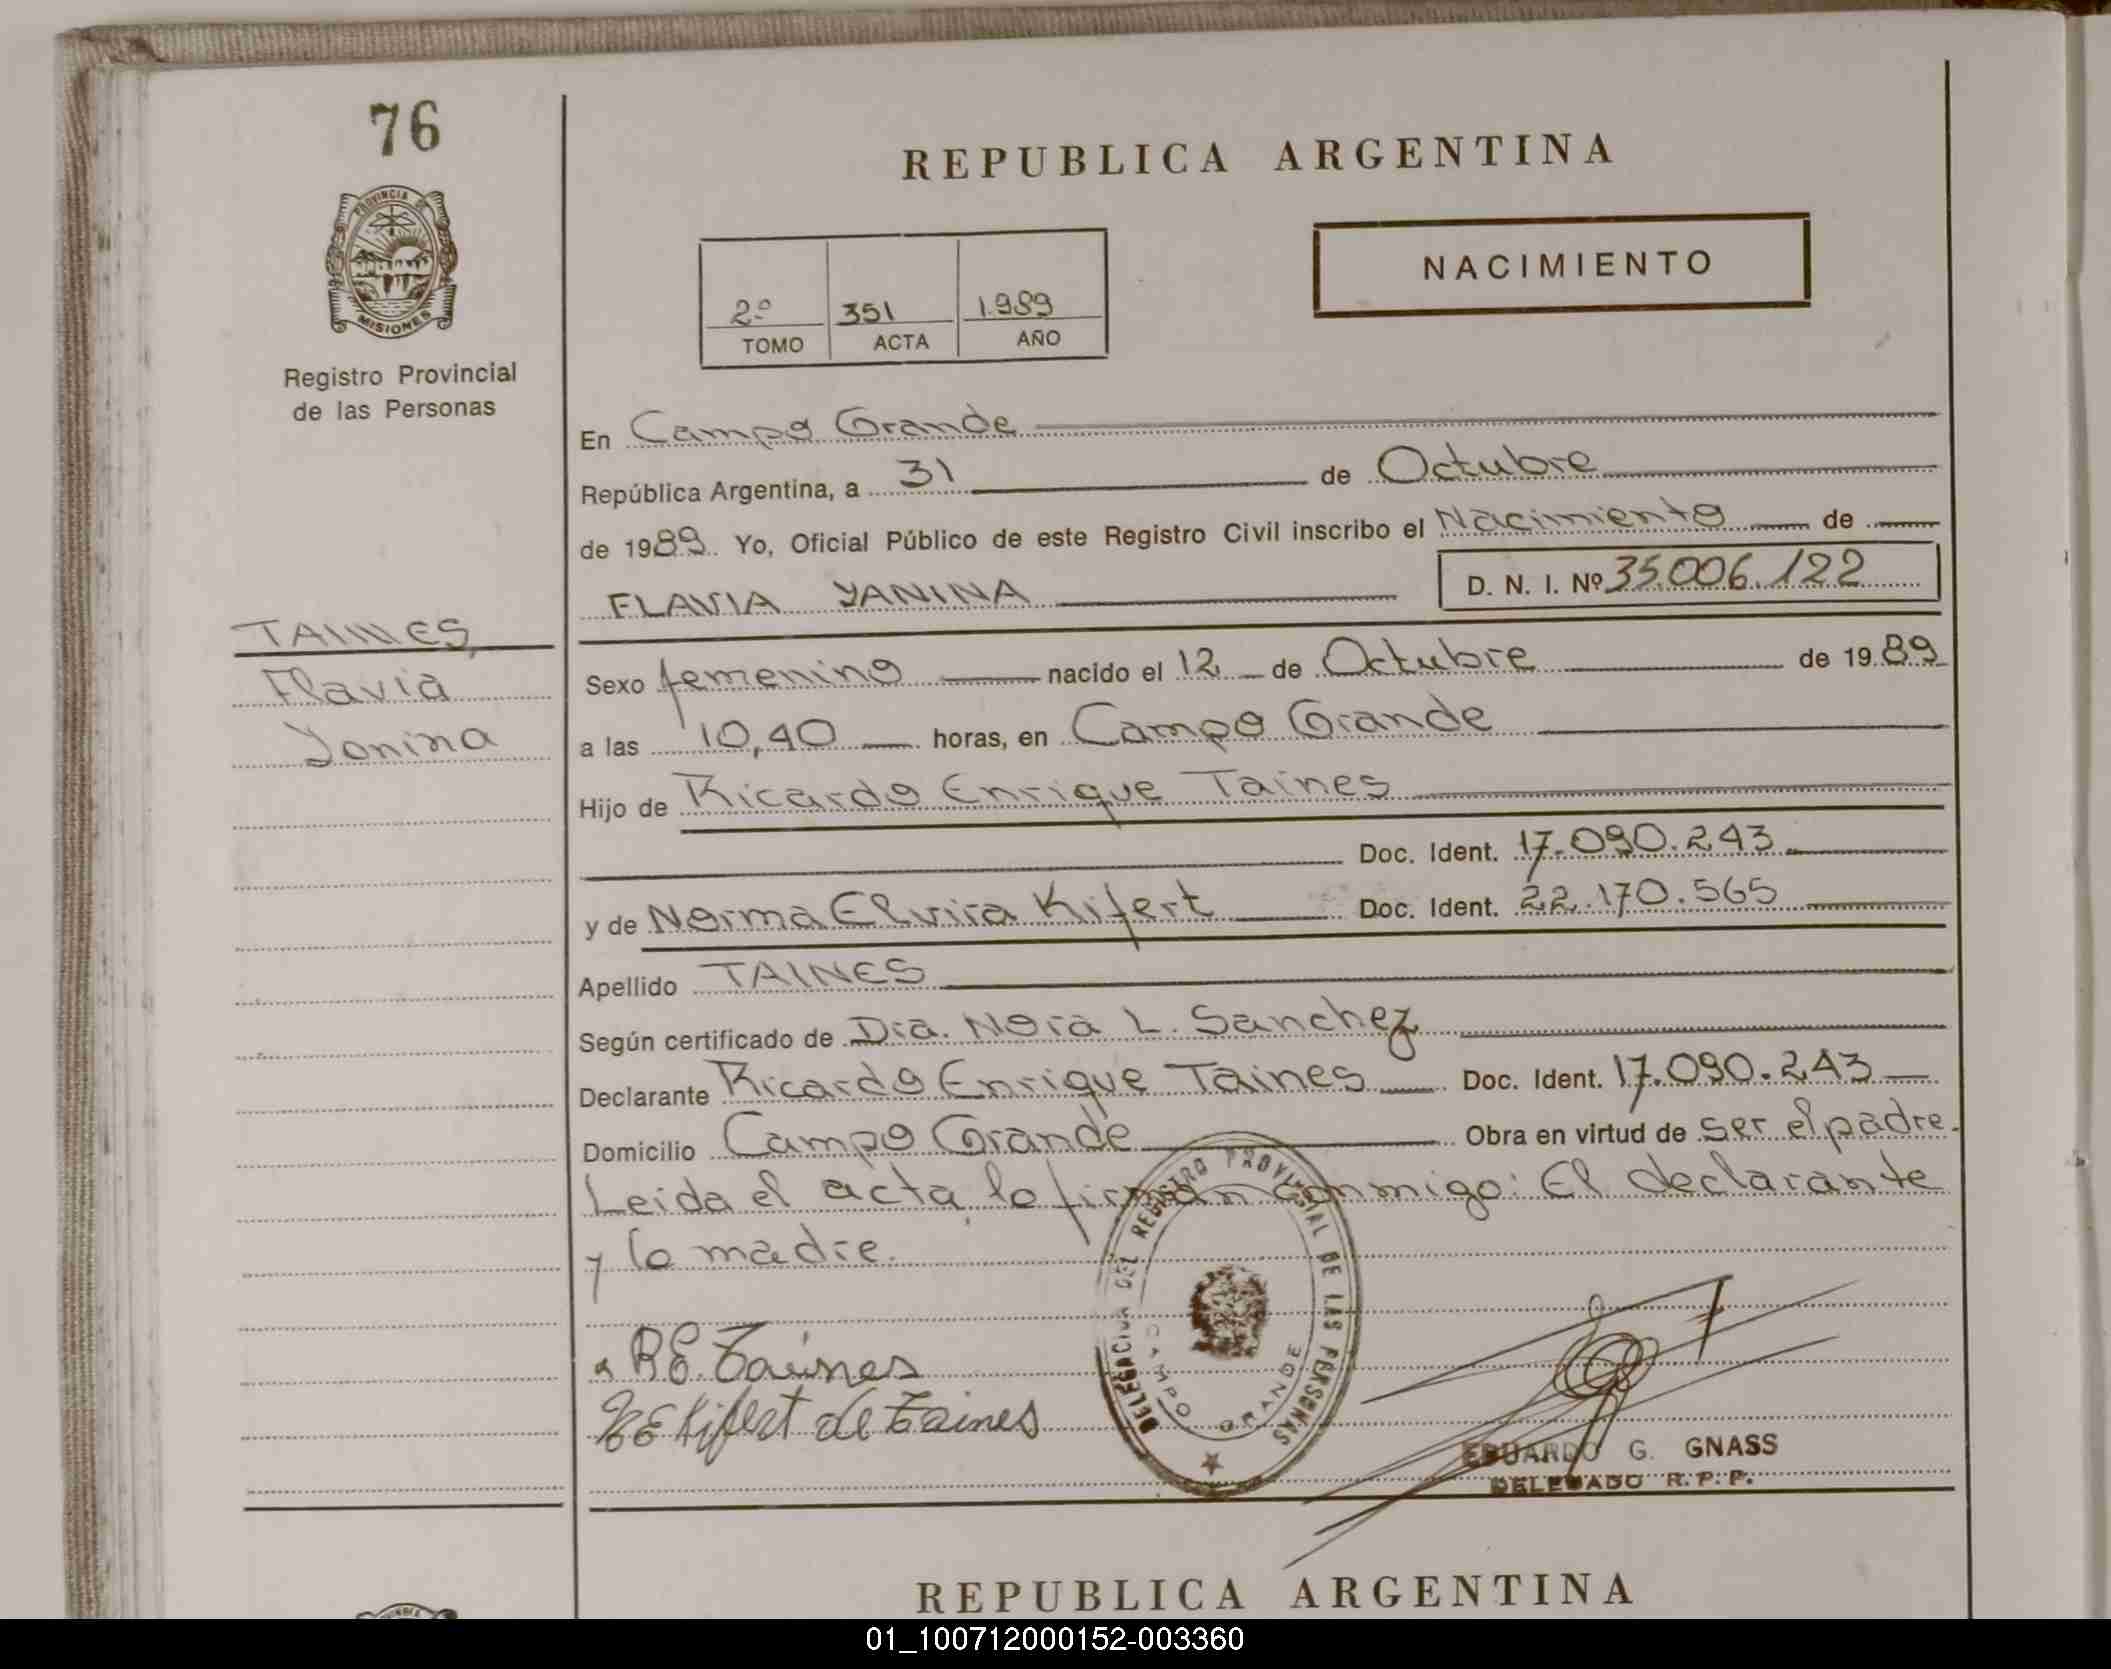 76
PROVINCIA DE
MISIONES
Registro Provincial
de las Personas
TAINES,
Flavia
Yanina
REPUBLICA ARGENTINA
NACIMIENTO
2º 351 1.989
TOMO ACTA AÑO
En Campo Grande
República Argentina, a 31 de Octubre
de 1989. Yo, Oficial Público de este Registro Civil inscribo el Nacimiento de
FLAVIA YANINA D. N. I. Nº 35.006.122
Sexo femenino nacido el 12 de Octubre de 1989
a las 10,40 horas, en Campo Grande
Hijo de Ricardo Enrique Taines
Doc. Ident. 17.090.243
y de Norma Elvira Kifert Doc. Ident. 22.170.565
Apellido TAINES
Según certificado de Dra. Nora L. Sanchez
Declarante Ricardo Enrique Taines Doc. Ident. 17.090.243
Domicilio Campo Grande Obra en virtud de ser el padre.
Leida el acta, la firman conmigo: El declarante
y la madre.
DELEGACION DEL REGISTRO PROVINCIAL DE LAS PERSONAS
CAMPO GRANDE
R.E. Taines
Kifert de Taines
EDUARDO G. GNASS
DELEGADO R.P.P.
REPUBLICA ARGENTINA
01_100712000152-003360